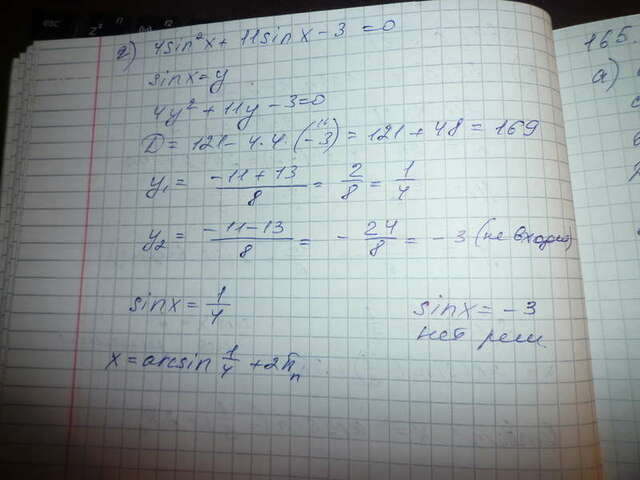 г) 4sin²x + 11sinx - 3 = 0
sinx = y
4y² + 11y - 3 = 0
D = 121 - 4·4·(-3) = 121 + 48 = 169
y₁ = (-11 + 13)/8 = 2/8 = 1/4
y₂ = (-11 - 13)/8 = -24/8 = -3 (не входит)
sinx = 1/4 sinx = -3
нет реш.
x = arcsin 1/4 + 2πn
165.
а)